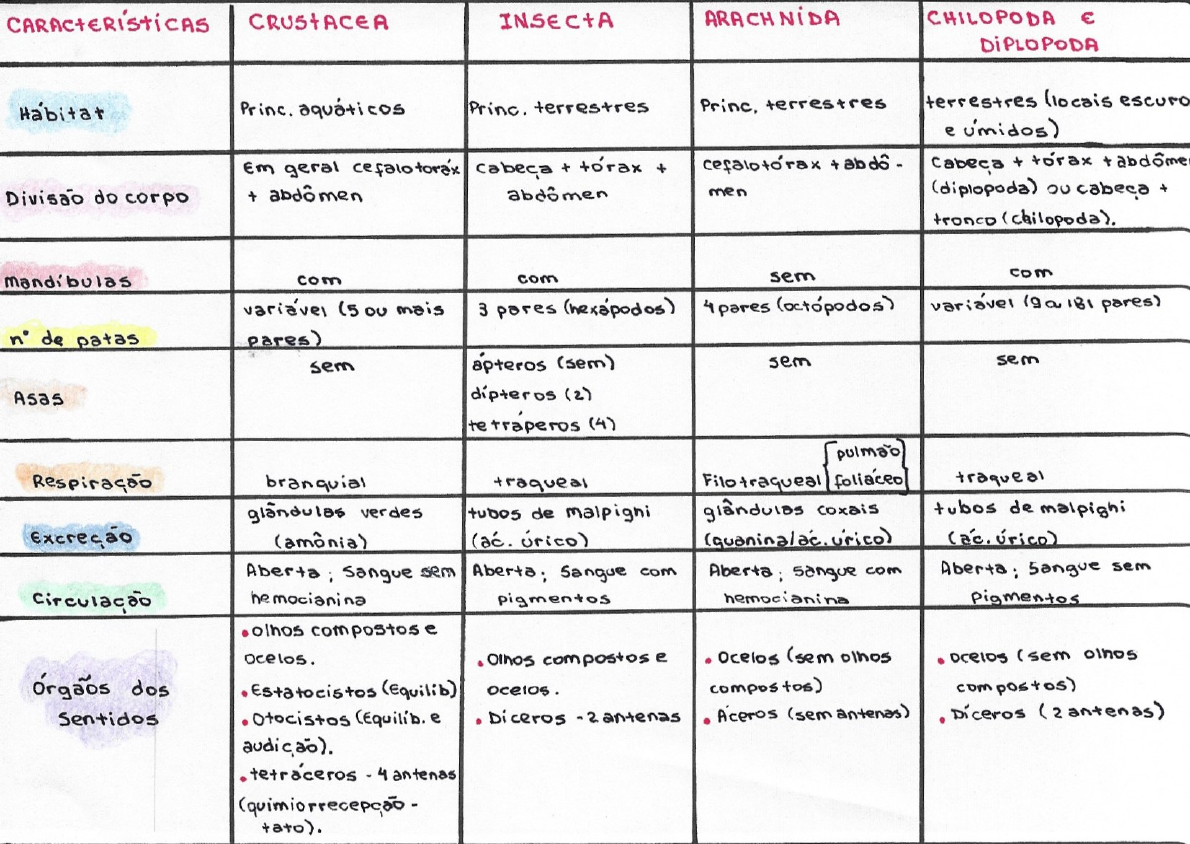 CARACTERÍSTICAS
CRUSTACEA
INSECTA
ARACHNÍDA
CHILOPODA E
DIPLOPODA
Hábitat
Princ. aquáticos
Princ. terrestres
Princ. terrestres
terrestres (locais escuro
e úmidos)
Divisão do corpo
Em geral cefalotoráx
+ abdômen
cabeça + tórax +
abdômen
cefalotórax + abdô-
men
cabeça + tórax + abdôme
(diplopoda) ou cabeça +
tronco (chilopoda).
Mandíbulas
com
com
sem
com
nº de patas
variável (5 ou mais
pares)
3 pares (hexápodos)
4 pares (octópodos)
variável (9 a 181 pares)
Asas
sem
ápteros (sem)
dípteros (2)
tetráperos (4)
sem
sem
Respiração
branquial
traqueal
Filotraqueal
pulmão
foliáceo
traqueal
Excreção
glândulas verdes
(amônia)
tubos de malpigni
(ác. úrico)
glândulas coxais
(guanina/ác. úrico)
tubos de malpighi
(ác. úrico)
Circulação
Aberta; Sangue sem
hemocianina
Aberta; Sangue com
pigmentos
Aberta; Sangue com
hemocianina
Aberta; Sangue sem
Pigmentos
Órgãos dos
Sentidos
• olhos compostos e
ocelos.
• Estatocistos (Equilib)
• Otocistos (Equilib. e
audição).
• tetráceros - 4 antenas
(quimiorrecepção -
tato).
• Olhos compostos e
ocelos.
• Díceros - 2 antenas
• Ocelos (sem olhos
compostos)
• Áceros (sem antenas)
• Ocelos (sem olhos
compostos)
• Díceros (2 antenas)